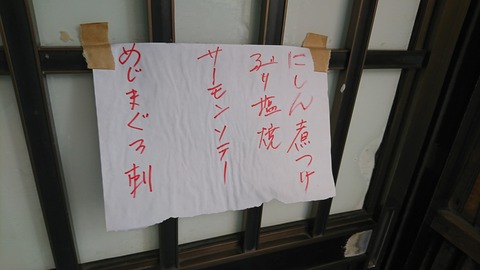 にしん煮つけ
ぶり塩焼
サーモンソテー
めじまぐろ刺